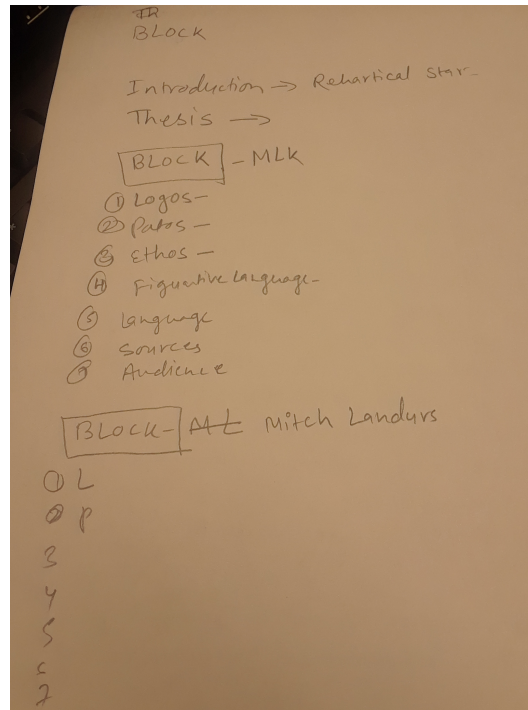 BLOCK
Introduction → Rehartical Star-
Thesis →
BLOCK - MLK
① Logos -
② Patos -
③ Ethos -
④ Figuative Language -
⑤ Language
⑥ Sources
⑦ Audience
BLOCK - Mitch Landurs
① L
② P
3
4
5
6
7